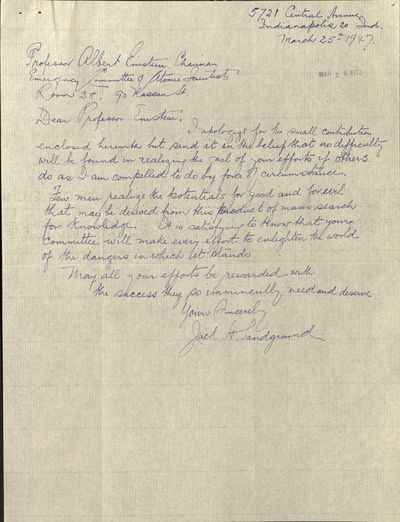 5721 Central Avenue,
Indianapolis 20 Ind.
March 25th 1947.
Professor Albert Einstein Chairman
Emergency Committee of Atomic Scientists
Room 28, 90 Nassau St.
MAR 28
Dear Professor Einstein:
I apologize for the small contribution
enclosed herewith but send it in the belief that no difficulty
will be found in realizing the goal of your efforts if others
do as I am compelled to do by force of circumstances.
Few men realize the potentials for good and for evil
that may be derived from this product of man's search
for knowledge. It is satisfying to know that your
Committee will make every effort to enlighten the world
of the dangers in which it stands
May all your efforts be rewarded with
the success they so imminently need and deserve
Yours Sincerely
Jack H. Sandground